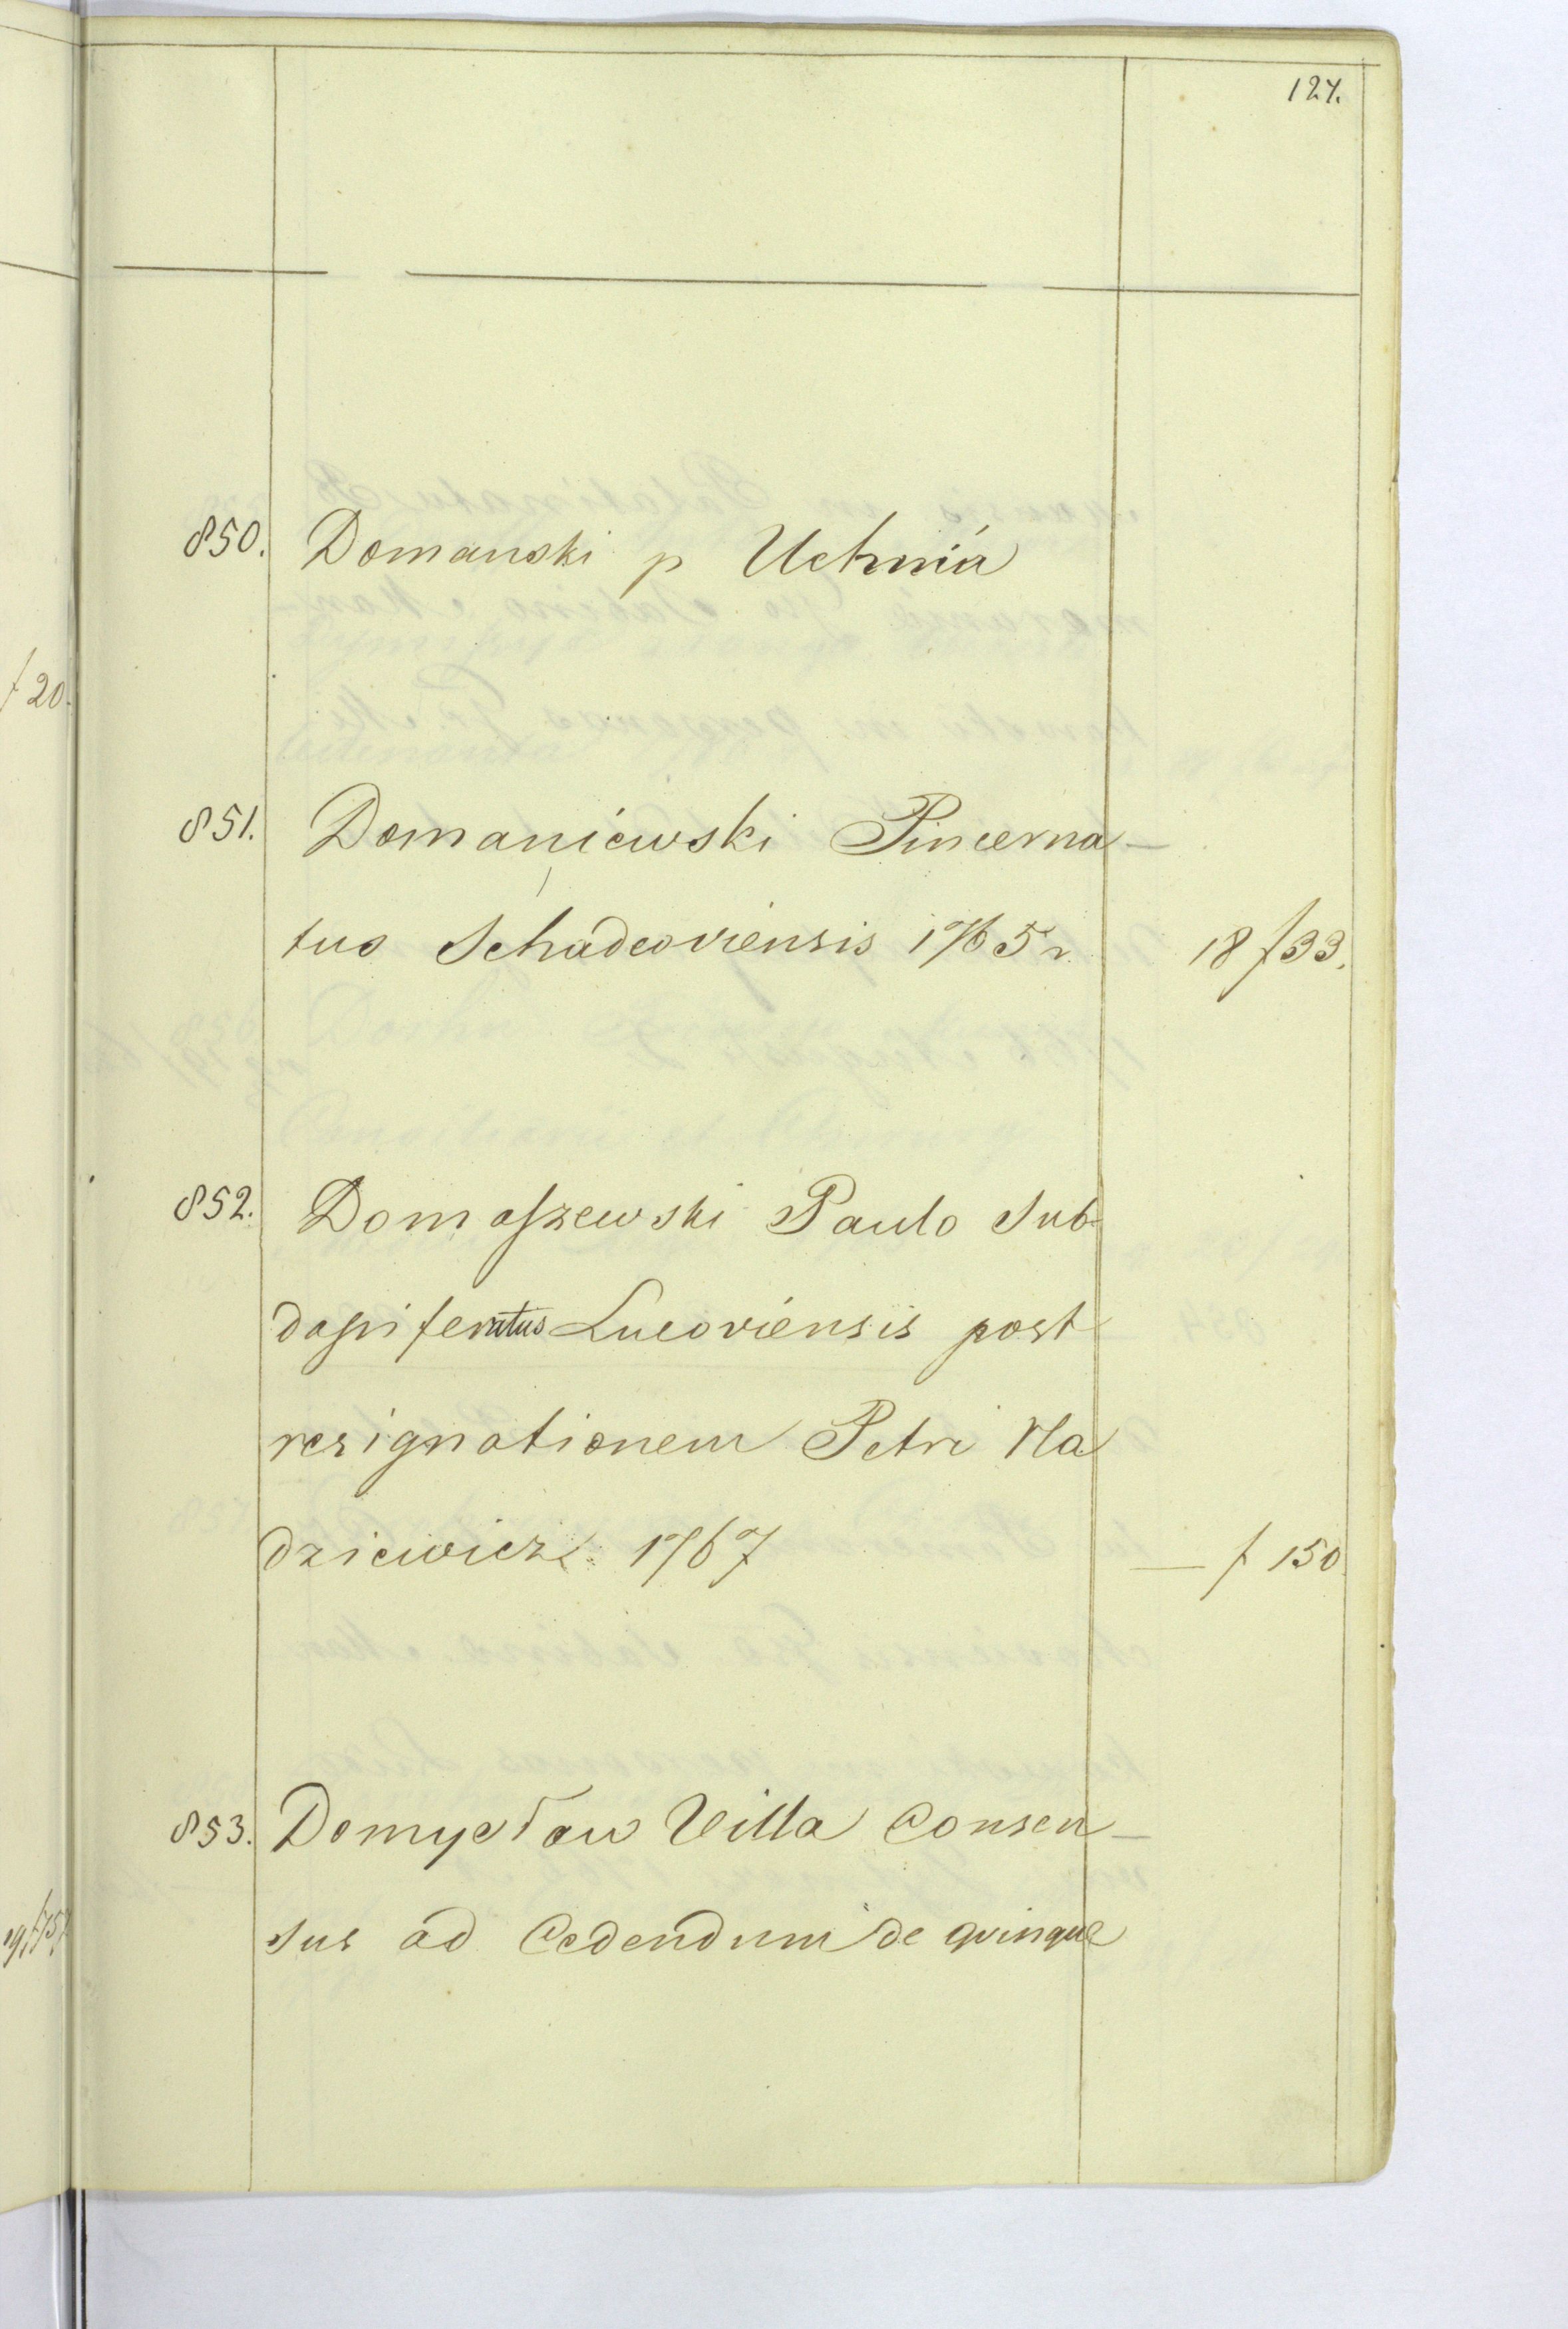 127.
850. Domanski p Uchnia
851. Domaniewski Pincerna-
tus Schadcoviensis 1765 r. 18 f 33.
852. Domaszewski Paulo Sub
dapiferatus Lucoviensis post
resignationem Petri Ma
dziewicz 1767 — f 150
853. Domysław Villa Consen-
sus ad Cedendum de quinque
f 20.